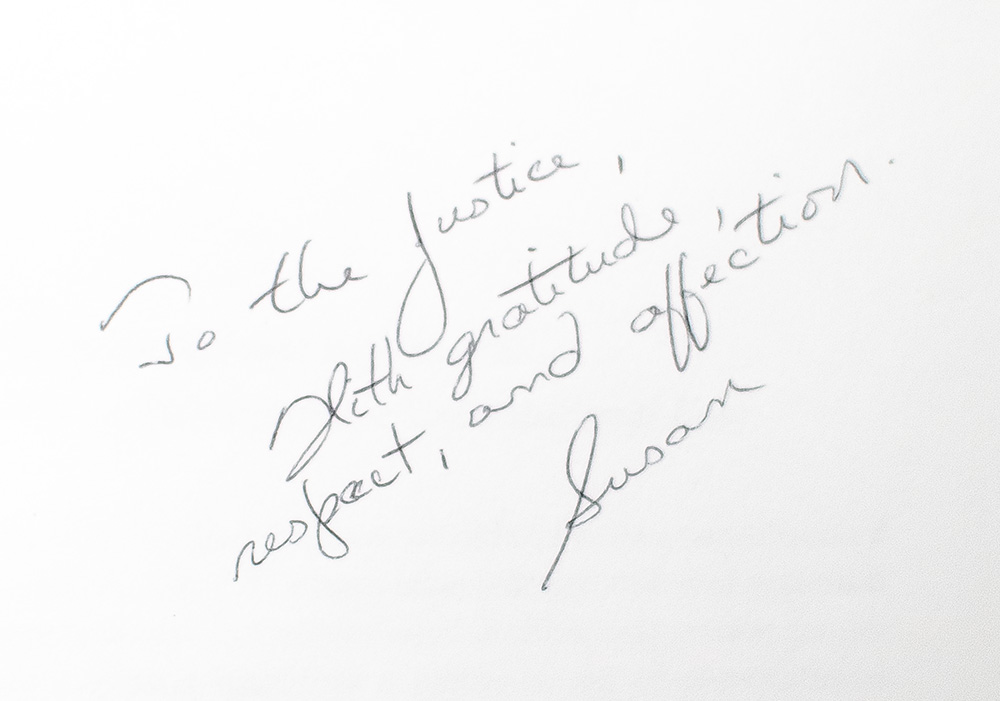 To the Justice,
With gratitude,
respect, and affection.
Susan